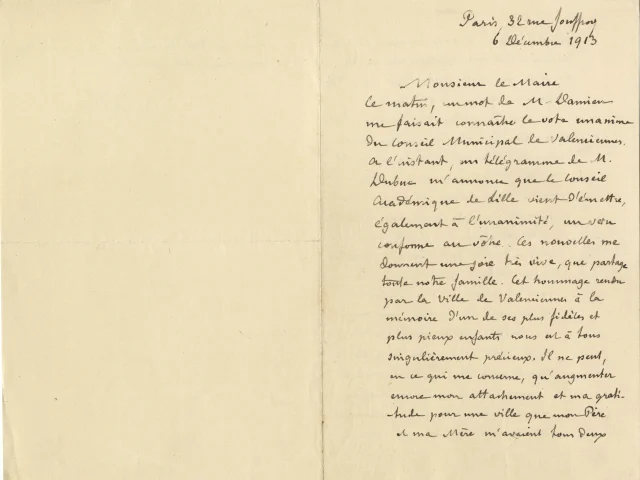 Paris, 32 rue Jouffroy
6 Décembre 1913
Monsieur le Maire
Ce matin, un mot de M. Damien
me faisait connaître le vote unanime
du Conseil Municipal de Valenciennes.
A l'instant, un télégramme de M.
Dubuc m'annonce que le Conseil
Académique de Lille vient d'émettre,
également à l'unanimité, un vœu
conforme au vôtre. Ces nouvelles me
donnent une joie très vive, que partage
toute notre famille. Cet hommage rendu
par la Ville de Valenciennes à la
mémoire d'un de ses plus fidèles et
plus pieux enfants nous est à tous
singulièrement précieux. Il ne peut,
en ce qui me concerne, qu'augmenter
encore mon attachement et ma grati-
tude pour une ville que mon Père
et ma Mère m'avaient tous deux